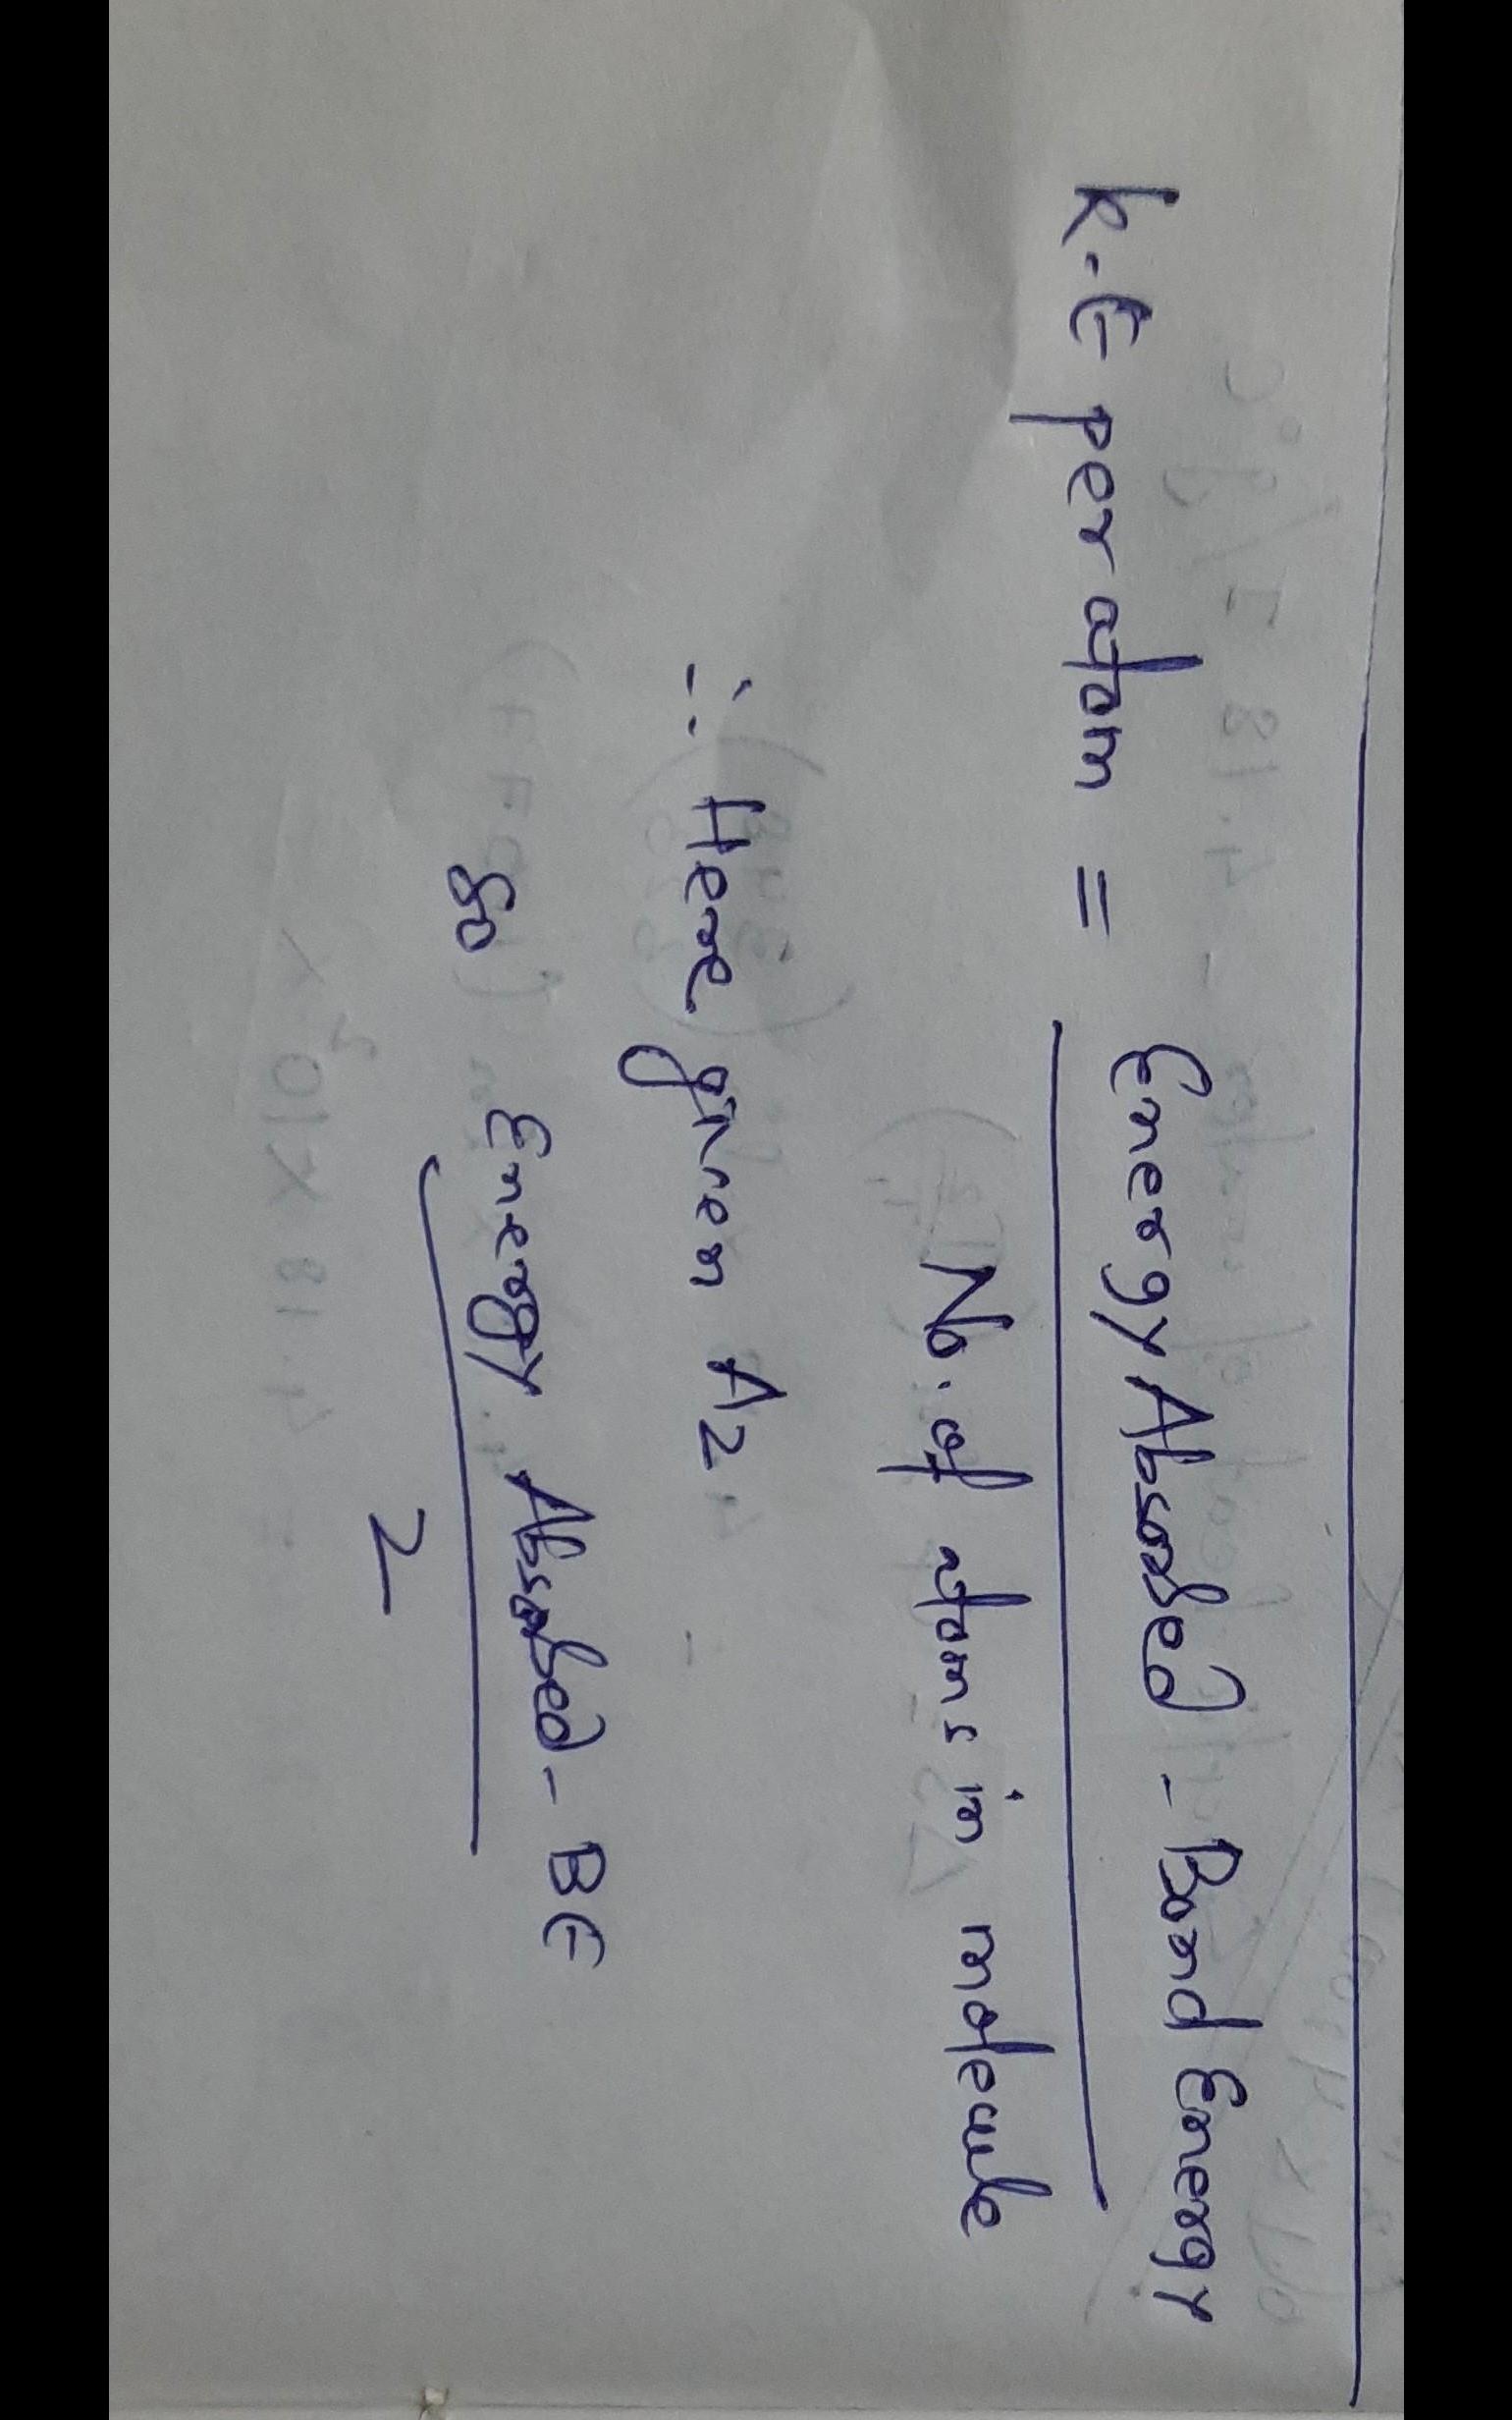 K.E per atom = Energy Absorbed - Bond Energy
No. of atoms in molecule
∴ Here given A2
so Energy Absorbed - BE
2